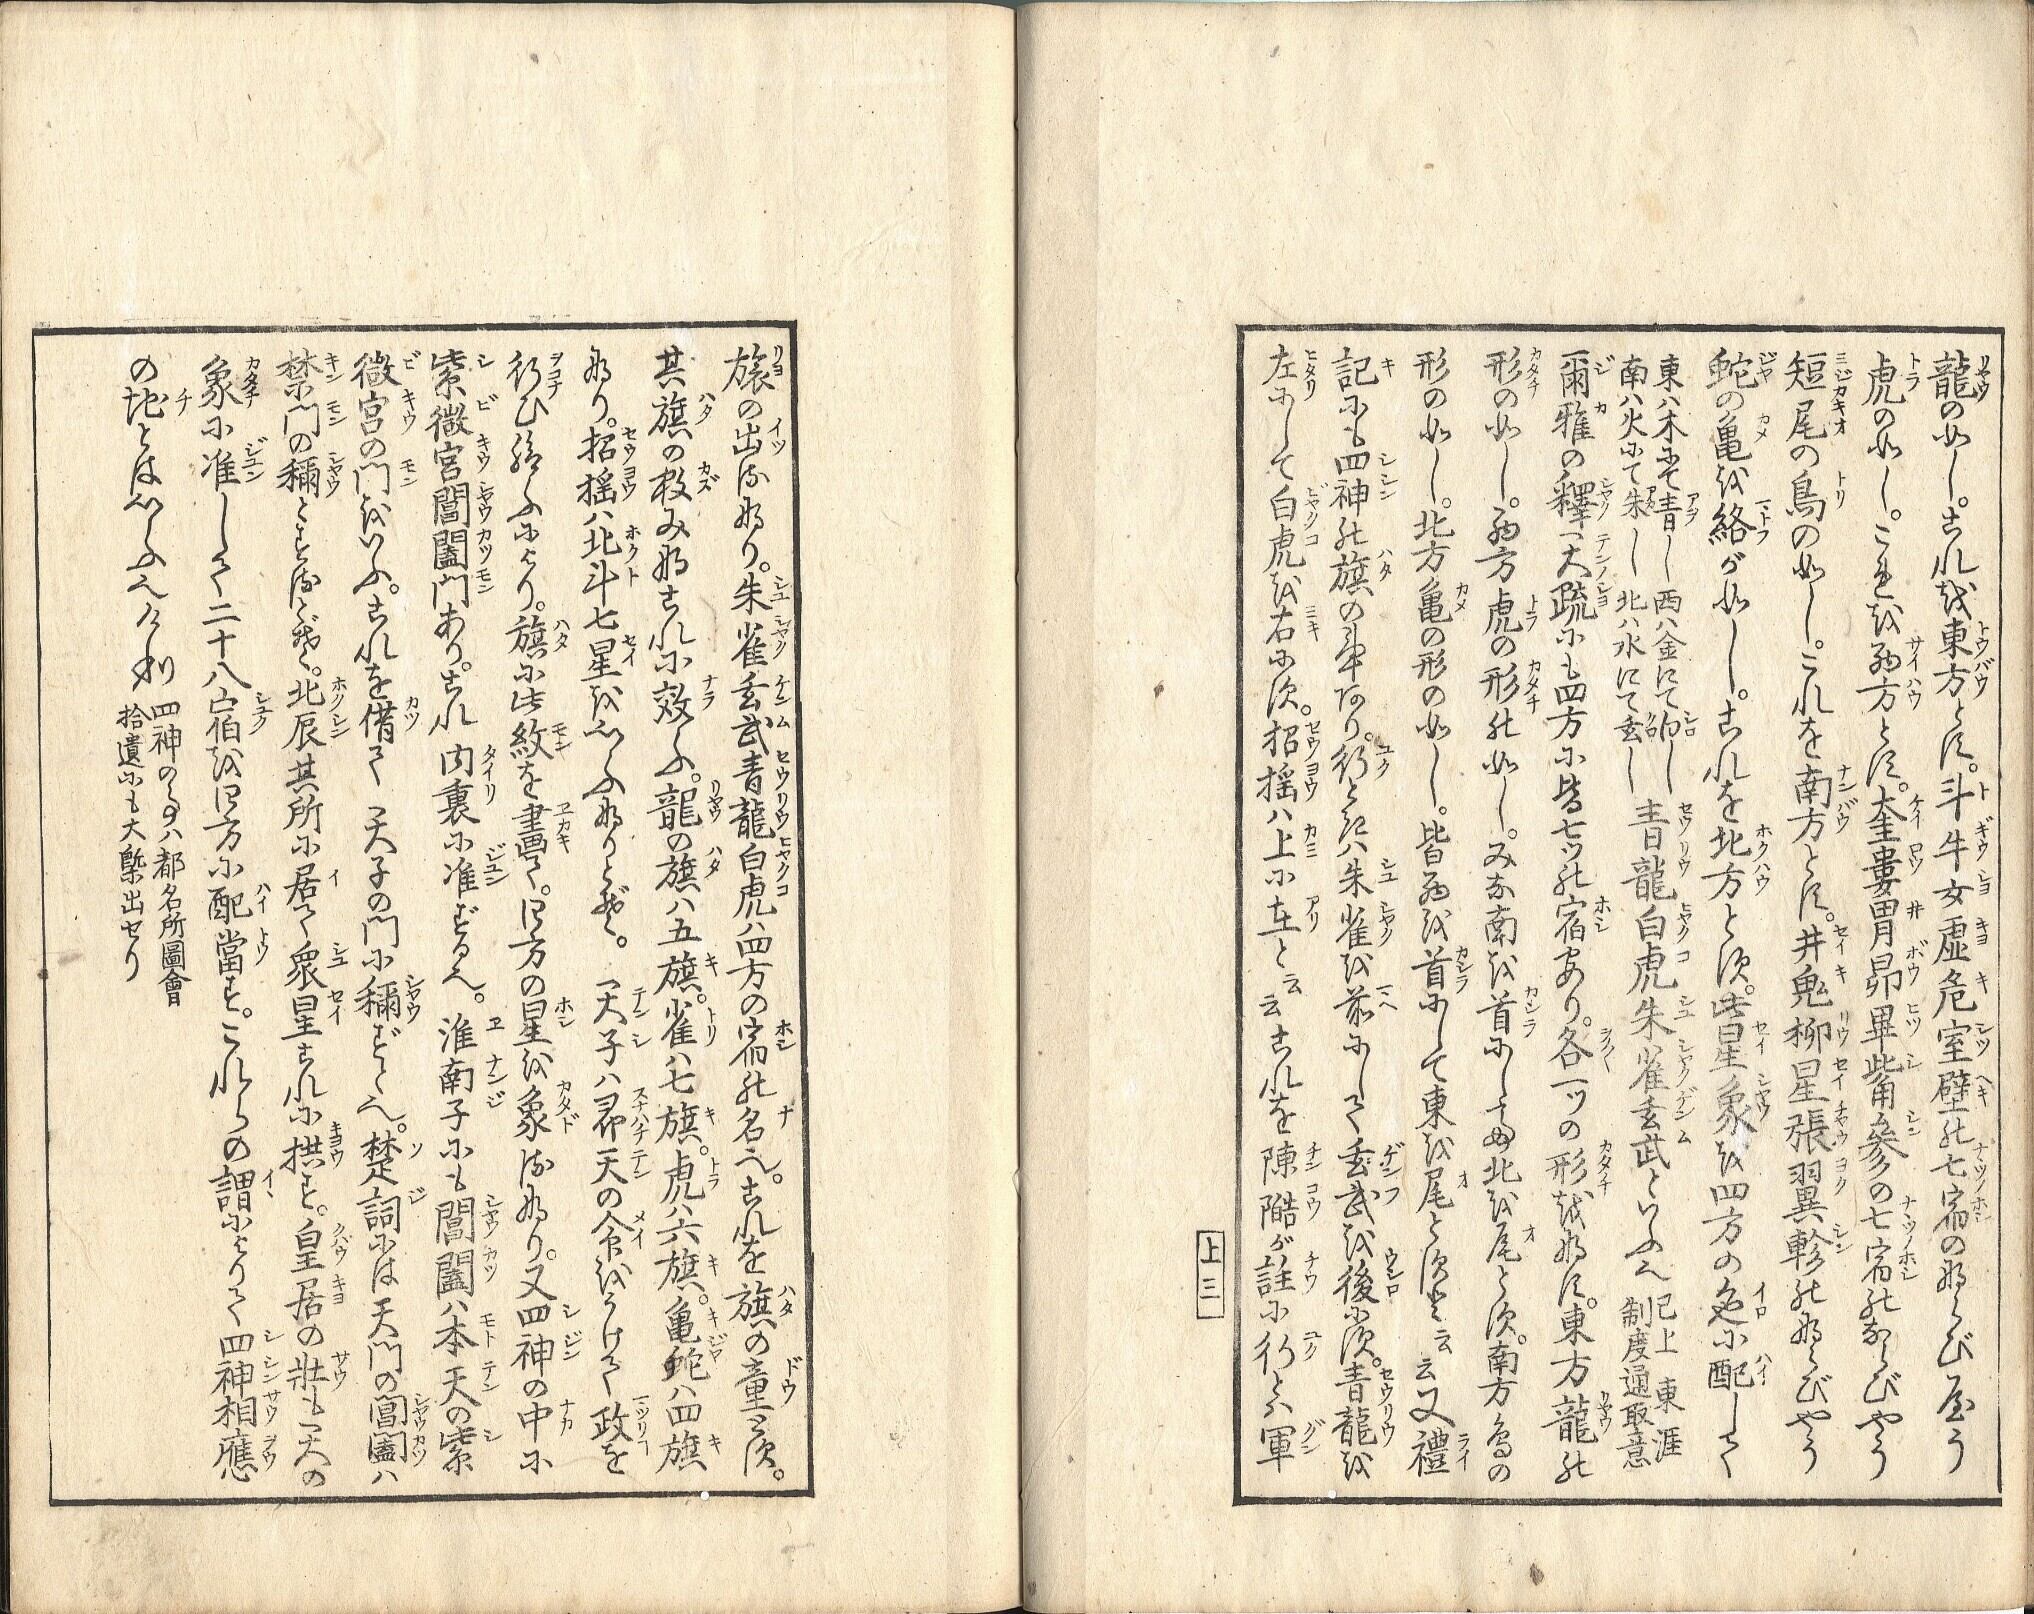 龍の如し。これを東方とす。斗牛女虚危室壁の七宿のならび屋う
虎の如し。これを西方とす。奎婁胃昴畢觜參の七宿のならびやう
短尾の鳥の如し。これを南方とす。井鬼柳星張翼軫のならびやう
蛇の亀を絡が如し。これを北方とす。此星象を四方の色に配して
東ハ木にて青し 西ハ金にて白し
南ハ火にて朱し 北ハ水にて玄し
青龍白虎朱雀玄武といふ也
已上 東涯
制度通取意
爾雅の釋天疏にも四方に皆七ツの宿あり。各一ツの形をなす。東方龍の
形の如し。西方虎の形の如し。みな南を首にし北を尾とす。南方鳥の
形の如し。北方亀の形の如し。皆西を首にして東を尾とすと云云又禮
記にも四神の旗の事あり。行ときハ朱雀を前にして玄武を後にす。青龍を
左にして白虎を右にす。招揺ハ上に在と云云これを陳澔が註に行とハ軍
上三
旅の出るなり。朱雀玄武青龍白虎ハ四方の宿の名也。これを旗の童とす。
其旗の数みなこれに效ふ。龍の旗ハ五旗。雀ハ七旗。虎ハ六旗。亀蛇ハ四旗
なり。招揺ハ北斗七星をいふなりとぞ。天子ハ即天の命をうけて政を
行ひ給ふにより。旗に此紋を畫て。四方の星を象るなり。又四神の中に
紫微宮閶闔門あり。これ内裏に准ずる也。淮南子にも閶闔ハ本天の紫
微宮の門をいふ。これを借て天子の門に稱ずと也。楚詞には天門の閶闔ハ
禁門の稱とするとぞ。北辰其所に居て衆星これに拱す。皇居の壮も天の
象に准して二十八宿を四方に配當す。これらの謂によりて四神相應
の地とはいふ也
四神の事ハ都名所圖會
拾遺にも大槩出せり